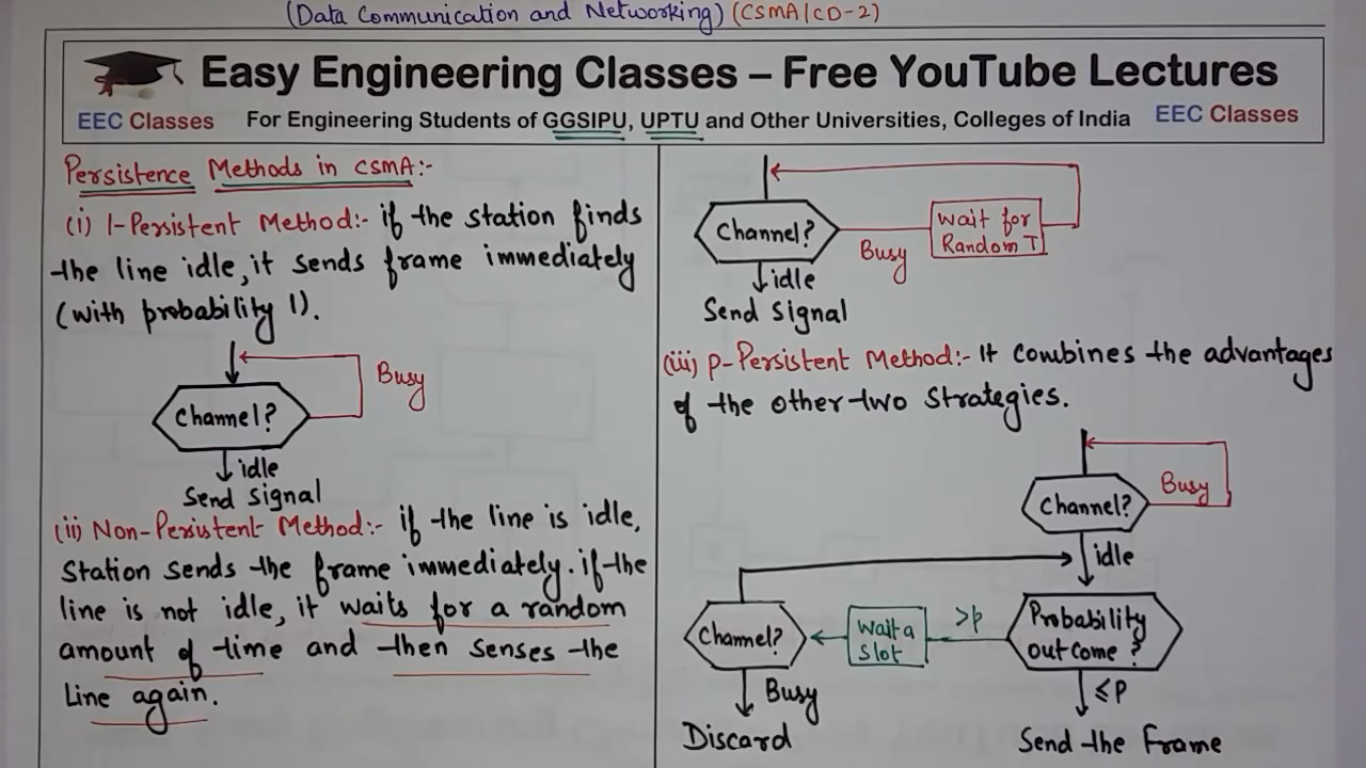 (Data Communication and Networking) (CSMA/CD-2)
Easy Engineering Classes – Free YouTube Lectures
EEC Classes For Engineering Students of GGSIPU, UPTU and Other Universities, Colleges of India EEC Classes
Persistence Methods in CSMA:-
(i) 1-Persistent Method:- if the station finds
the line idle, it sends frame immediately
(with probability 1).
Busy
Channel?
idle
Send Signal
(ii) Non-Persistent Method:- if the line is idle,
Station sends the frame immediately. if the
line is not idle, it waits for a random
amount of time and then senses the
Line again.
Channel?
Busy
Wait for
Random T
idle
Send Signal
(iii) p-Persistent Method:- It combines the advantages
of the other two strategies.
Channel?
Busy
idle
Probability
outcome?
>p
Wait a
Slot
Channel?
Busy
≤P
Discard
Send the Frame